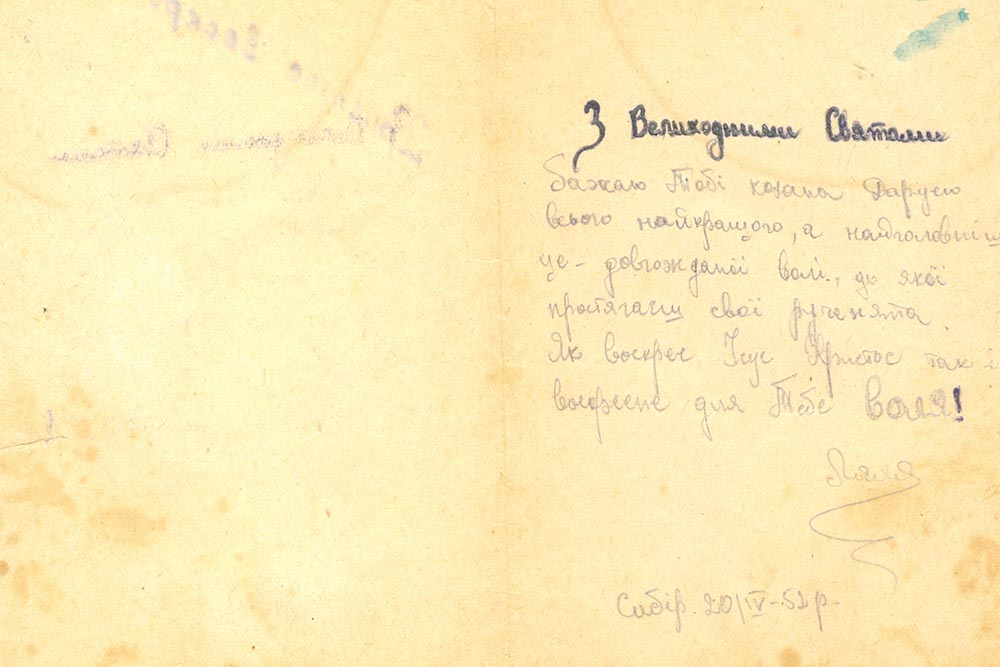 З Великодними Святами
бажаю Тобі кохана Дарусю
всього найкращого, а найголовніш
це - довгожданої волі, до якої
простягаєш свої рученята.
Як воскрес Ісус Христос так і
воскресне для Тебе воля!
Ляля
Сибір. 20/IV-52 р.